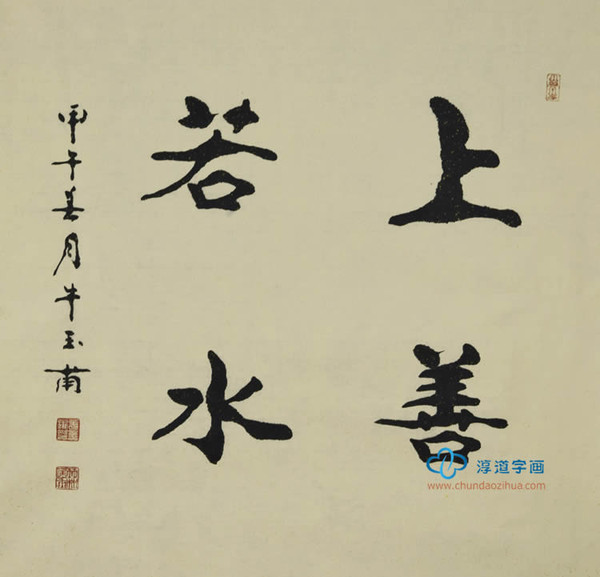 上善
若水
甲午春月牛玉甫
淳道字画
www.chundaozihua.com